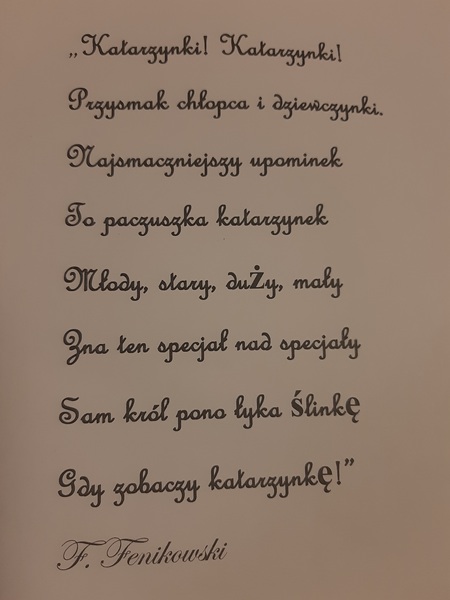 „Katarzynki! Katarzynki!
Przysmak chłopca i dziewczynki.
Najsmaczniejszy upominek
To paczuszka katarzynek
Młody, stary, duży, mały
Zna ten specjał nad specjały
Sam król pono łyka ślinkę
Gdy zobaczy katarzynkę!”
F. Fenikowski